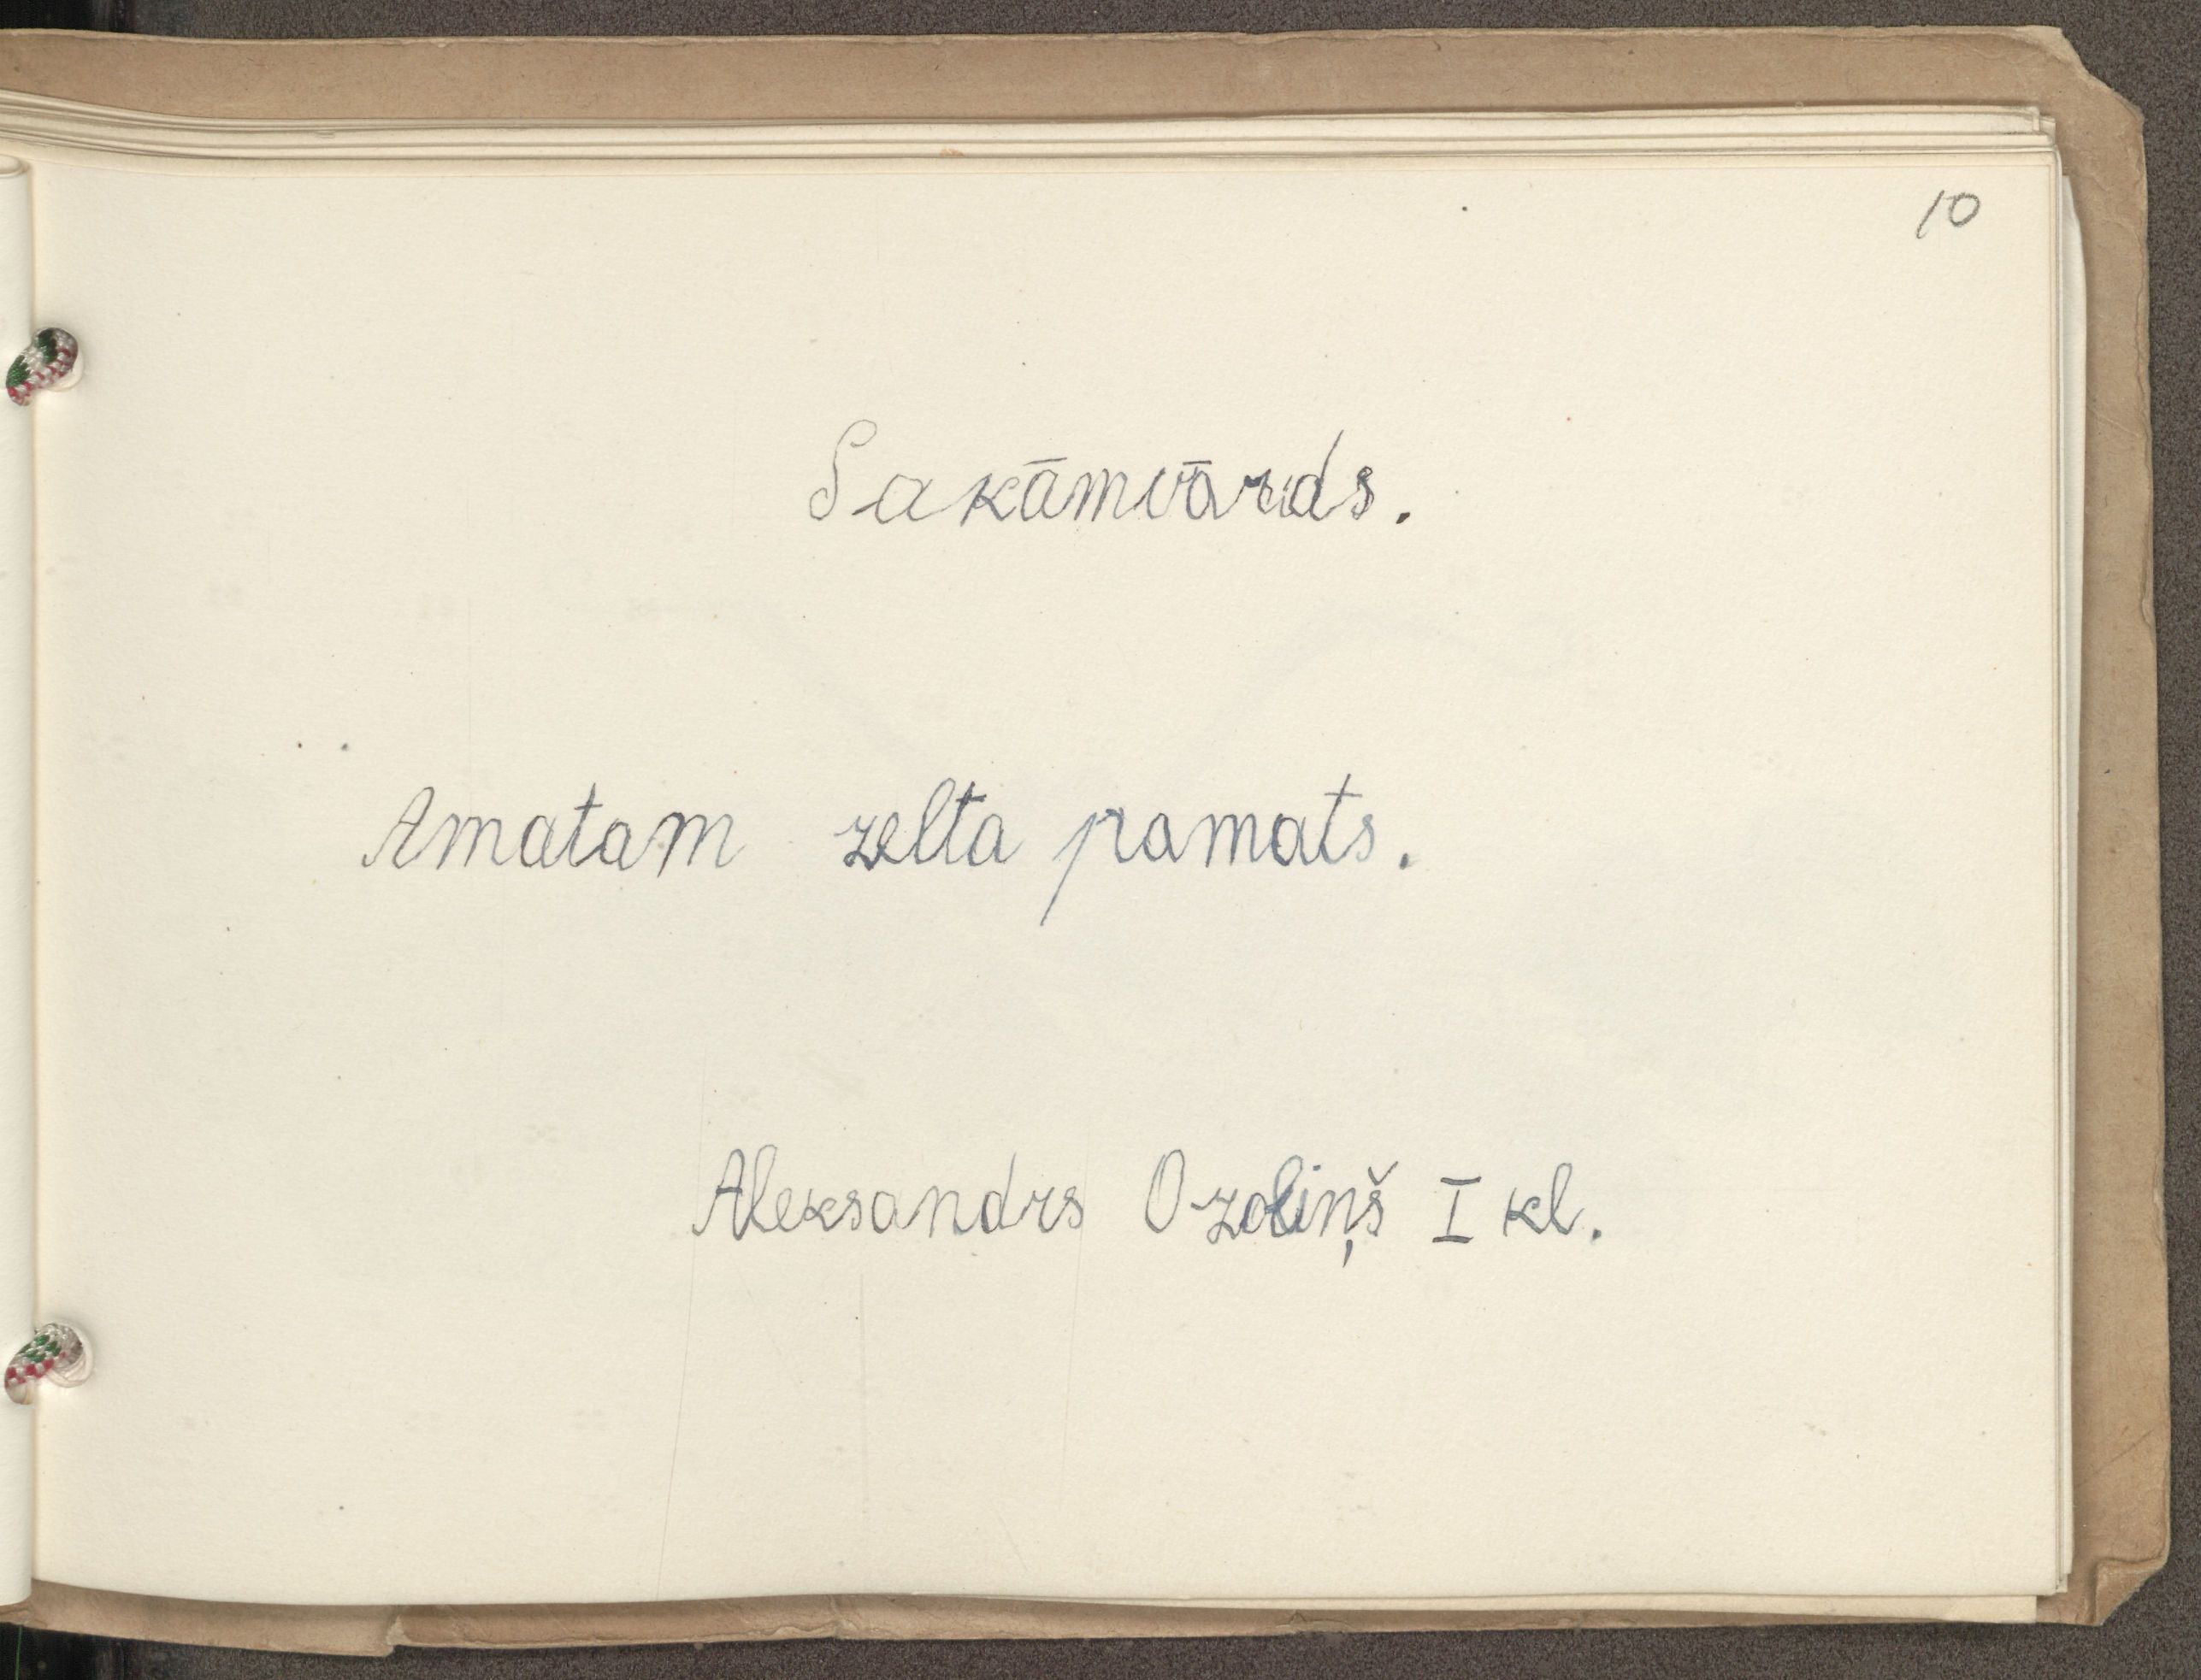 10
Sakāmvārds.
Amatam zelta pamats.
Aleksandrs Ozoliņš I kl.